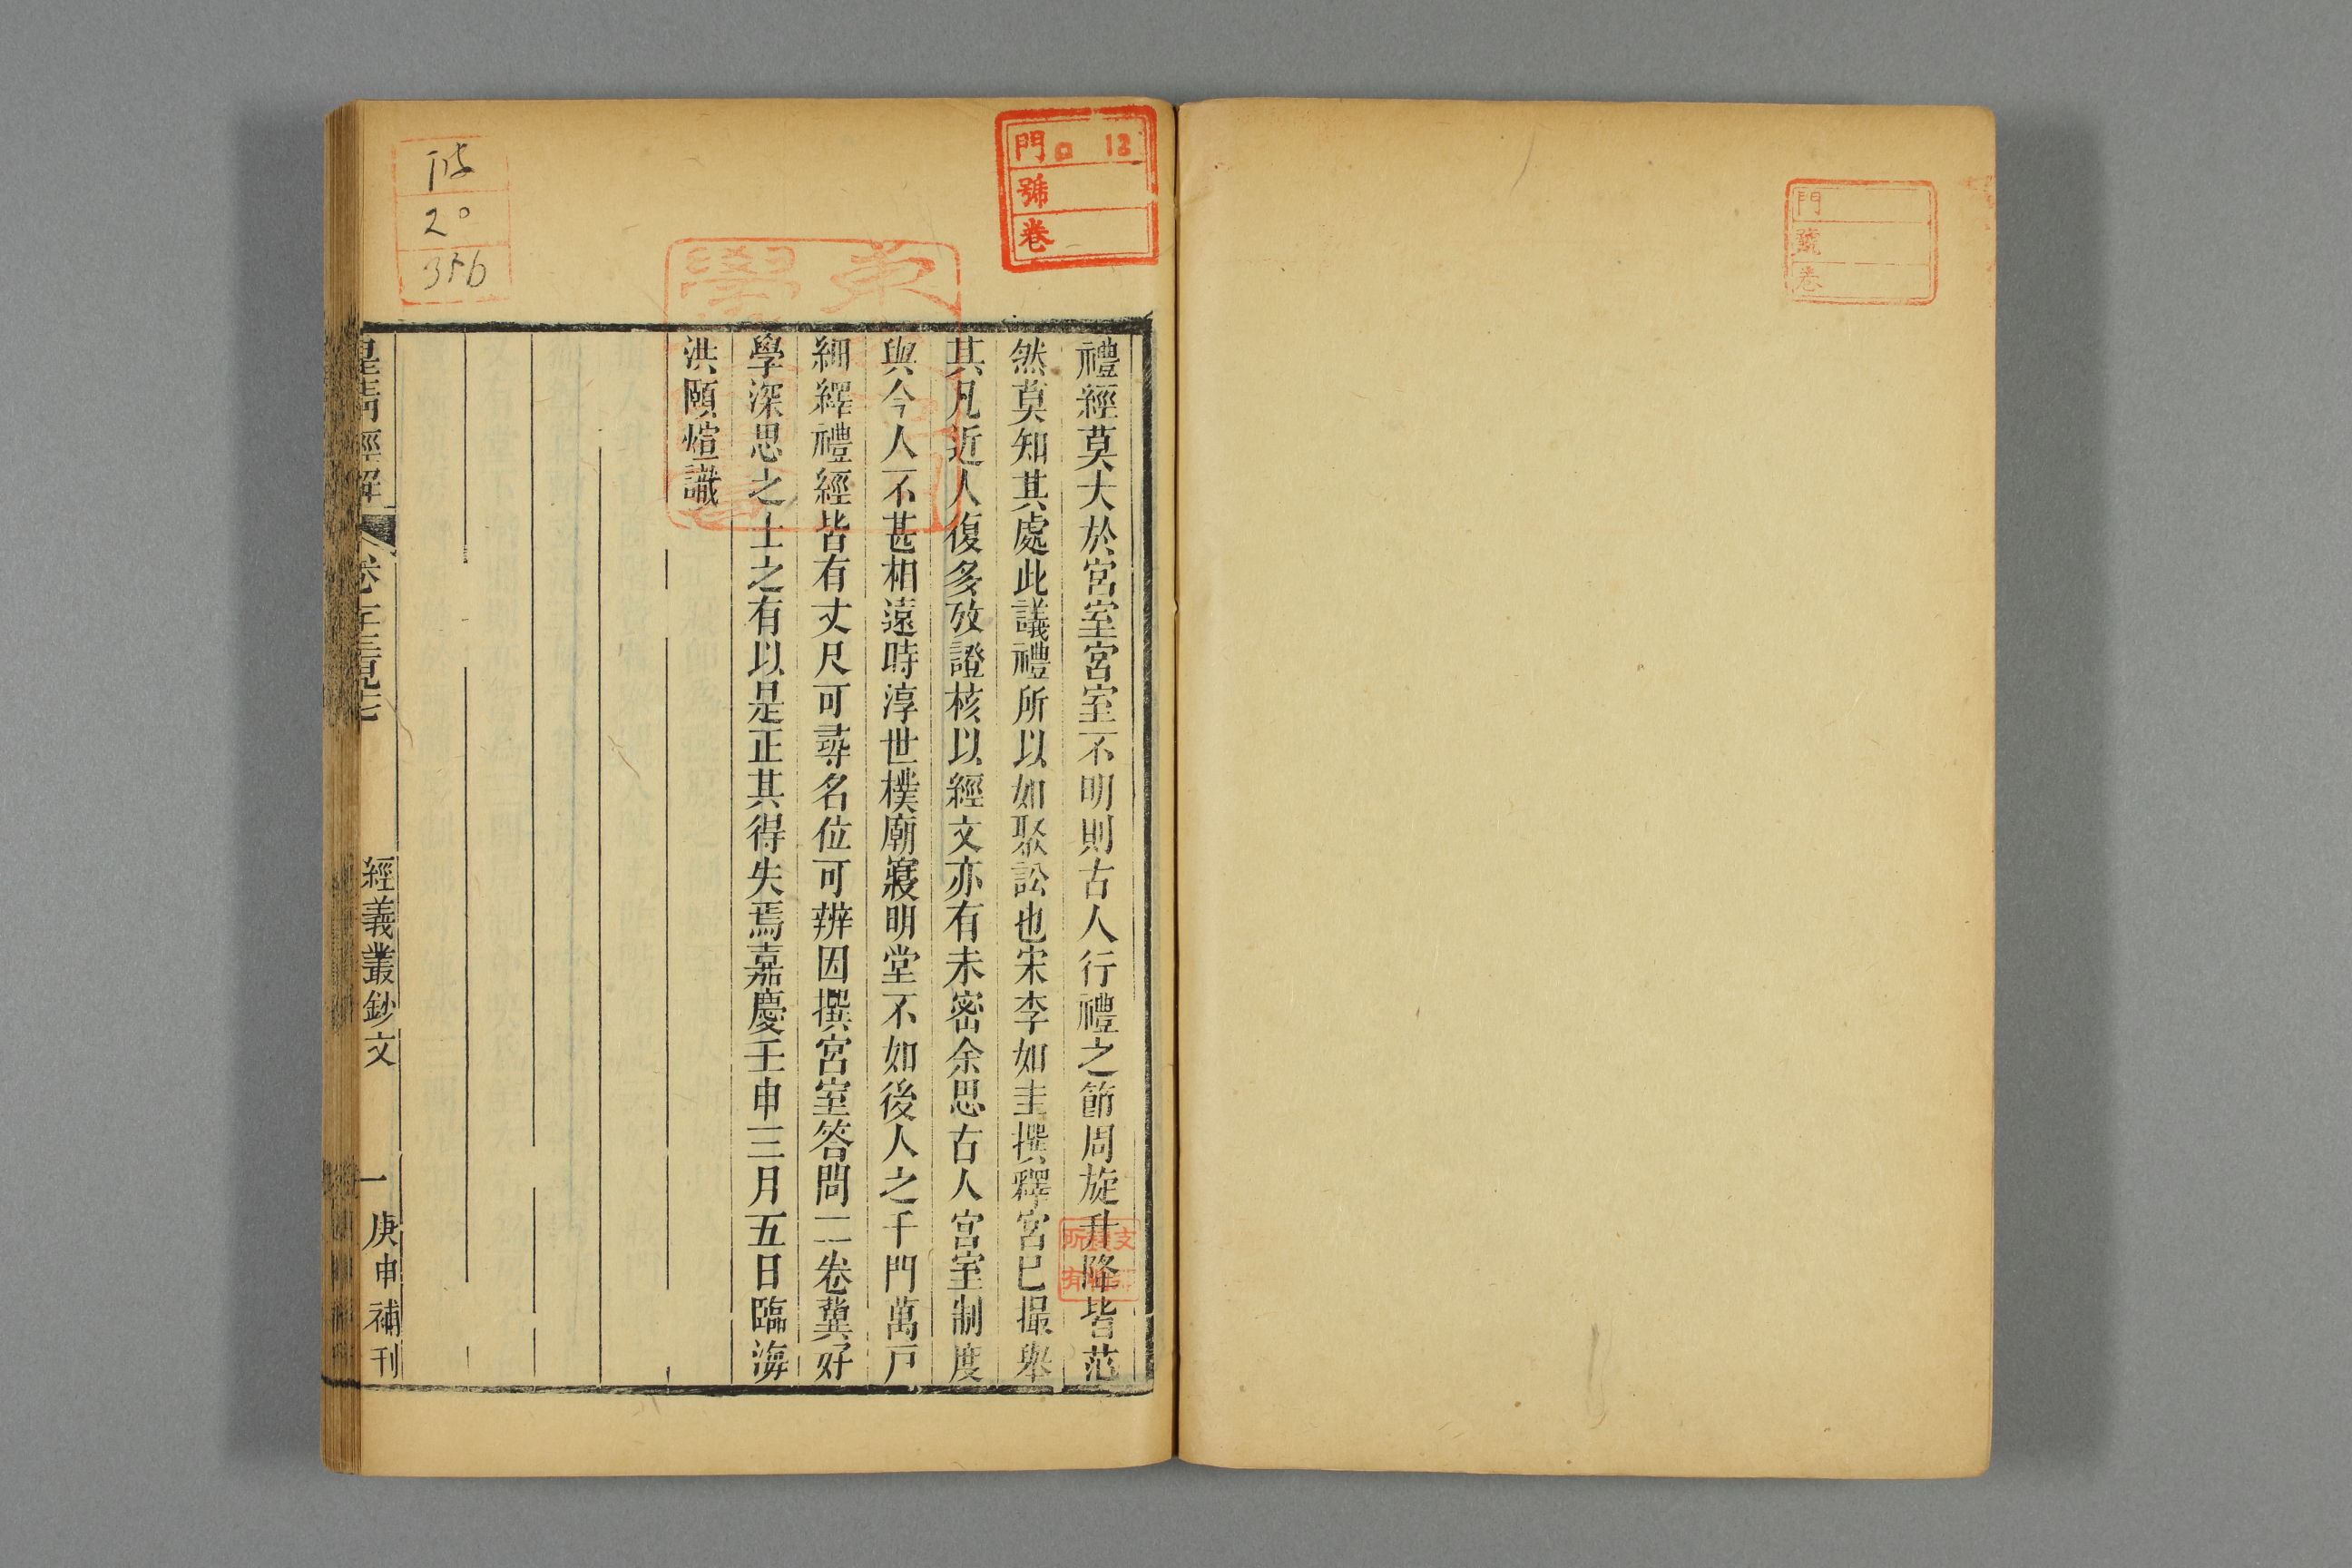 門
號
卷
門 口 13
號
卷
禮經莫大於宮室宮室不明則古人行禮之節周旋升降皆茫
然莫知其處此議禮所以如聚訟也宋李如圭撰釋宮已撮舉
其凡近人復多攷證核以經文亦有未密余思古人宮室制度
與今人不甚相遠時淳世樸廟寢明堂不如後人之千門萬戸
細繹禮經皆有丈尺可尋名位可辨因撰宮室答問二卷冀好
學深思之士之有以是正其得失焉嘉慶壬申三月五日臨海
洪頤煊識
皇清經解
經義叢鈔文
一
庚申補刊
20